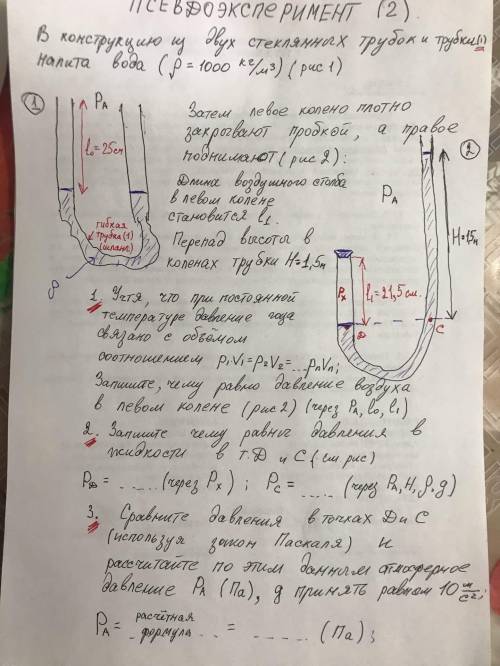 ПСЕВДОЭКСПЕРИМЕНТ (2)
В конструкцию из двух стеклянных трубок и трубки(1)
налита вода (ρ = 1000 кг/м³) (рис 1)
1
PA
l₀ = 25см
гибкая
трубка (1)
(шланг)
ρ
Затем левое колено плотно
закрывают пробкой, а правое
поднимают (рис 2):
Длина воздушного столба
в левом колене
становится l₁.
Перепад высоты в
коленах трубки H=1,5м
2
PA
H=1,5м
Pх
l₁ = 21,5 см.
D
C
1. Учтя, что при постоянной
температуре давление газа
связано с объёмом
соотношением p₁V₁=p₂V₂=...pnVn;
Запишите, чему равно давление воздуха
в левом колене (рис 2) (через PA, l₀, l₁)
2. Запишите чему равны давления в
жидкости в т. D и C (см. рис)
PD = ..... (через Pх) ; PC = ..... (через PA, H, ρ, g)
3. Сравните давления в точках D и C
(используя закон Паскаля) и
рассчитайте по этим данным атмосферное
давление PA (Па), g принять равном 10 м/с²;
PA = расчётная формула .. = ...... (Па);